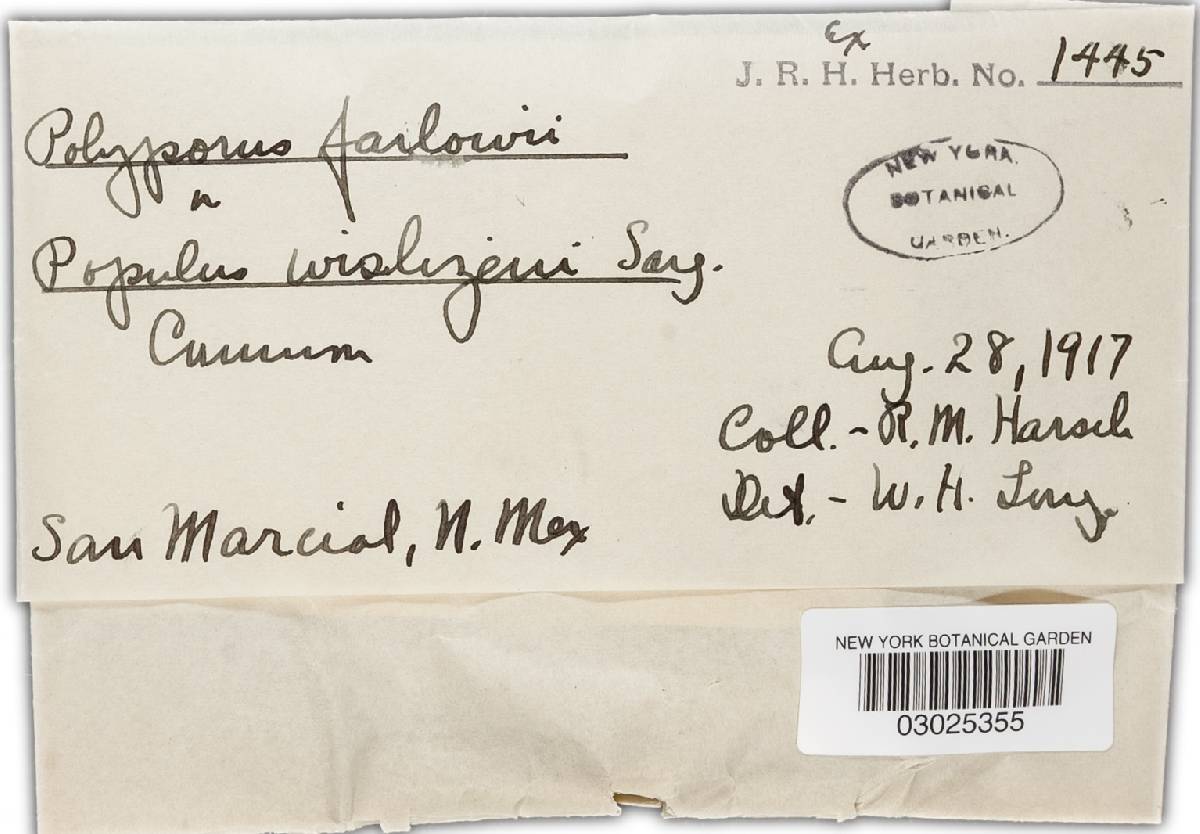 Ex
J. R. H. Herb. No. 1445
Polyporus farlowii
n
Populus wislizeni Sarg.
Common
NEW YORK
BOTANICAL
GARDEN.
Aug. 28, 1917
Coll. - R. M. Harsch
Det. - W. H. Long.
San Marcial, N. Mex
NEW YORK BOTANICAL GARDEN
03025355